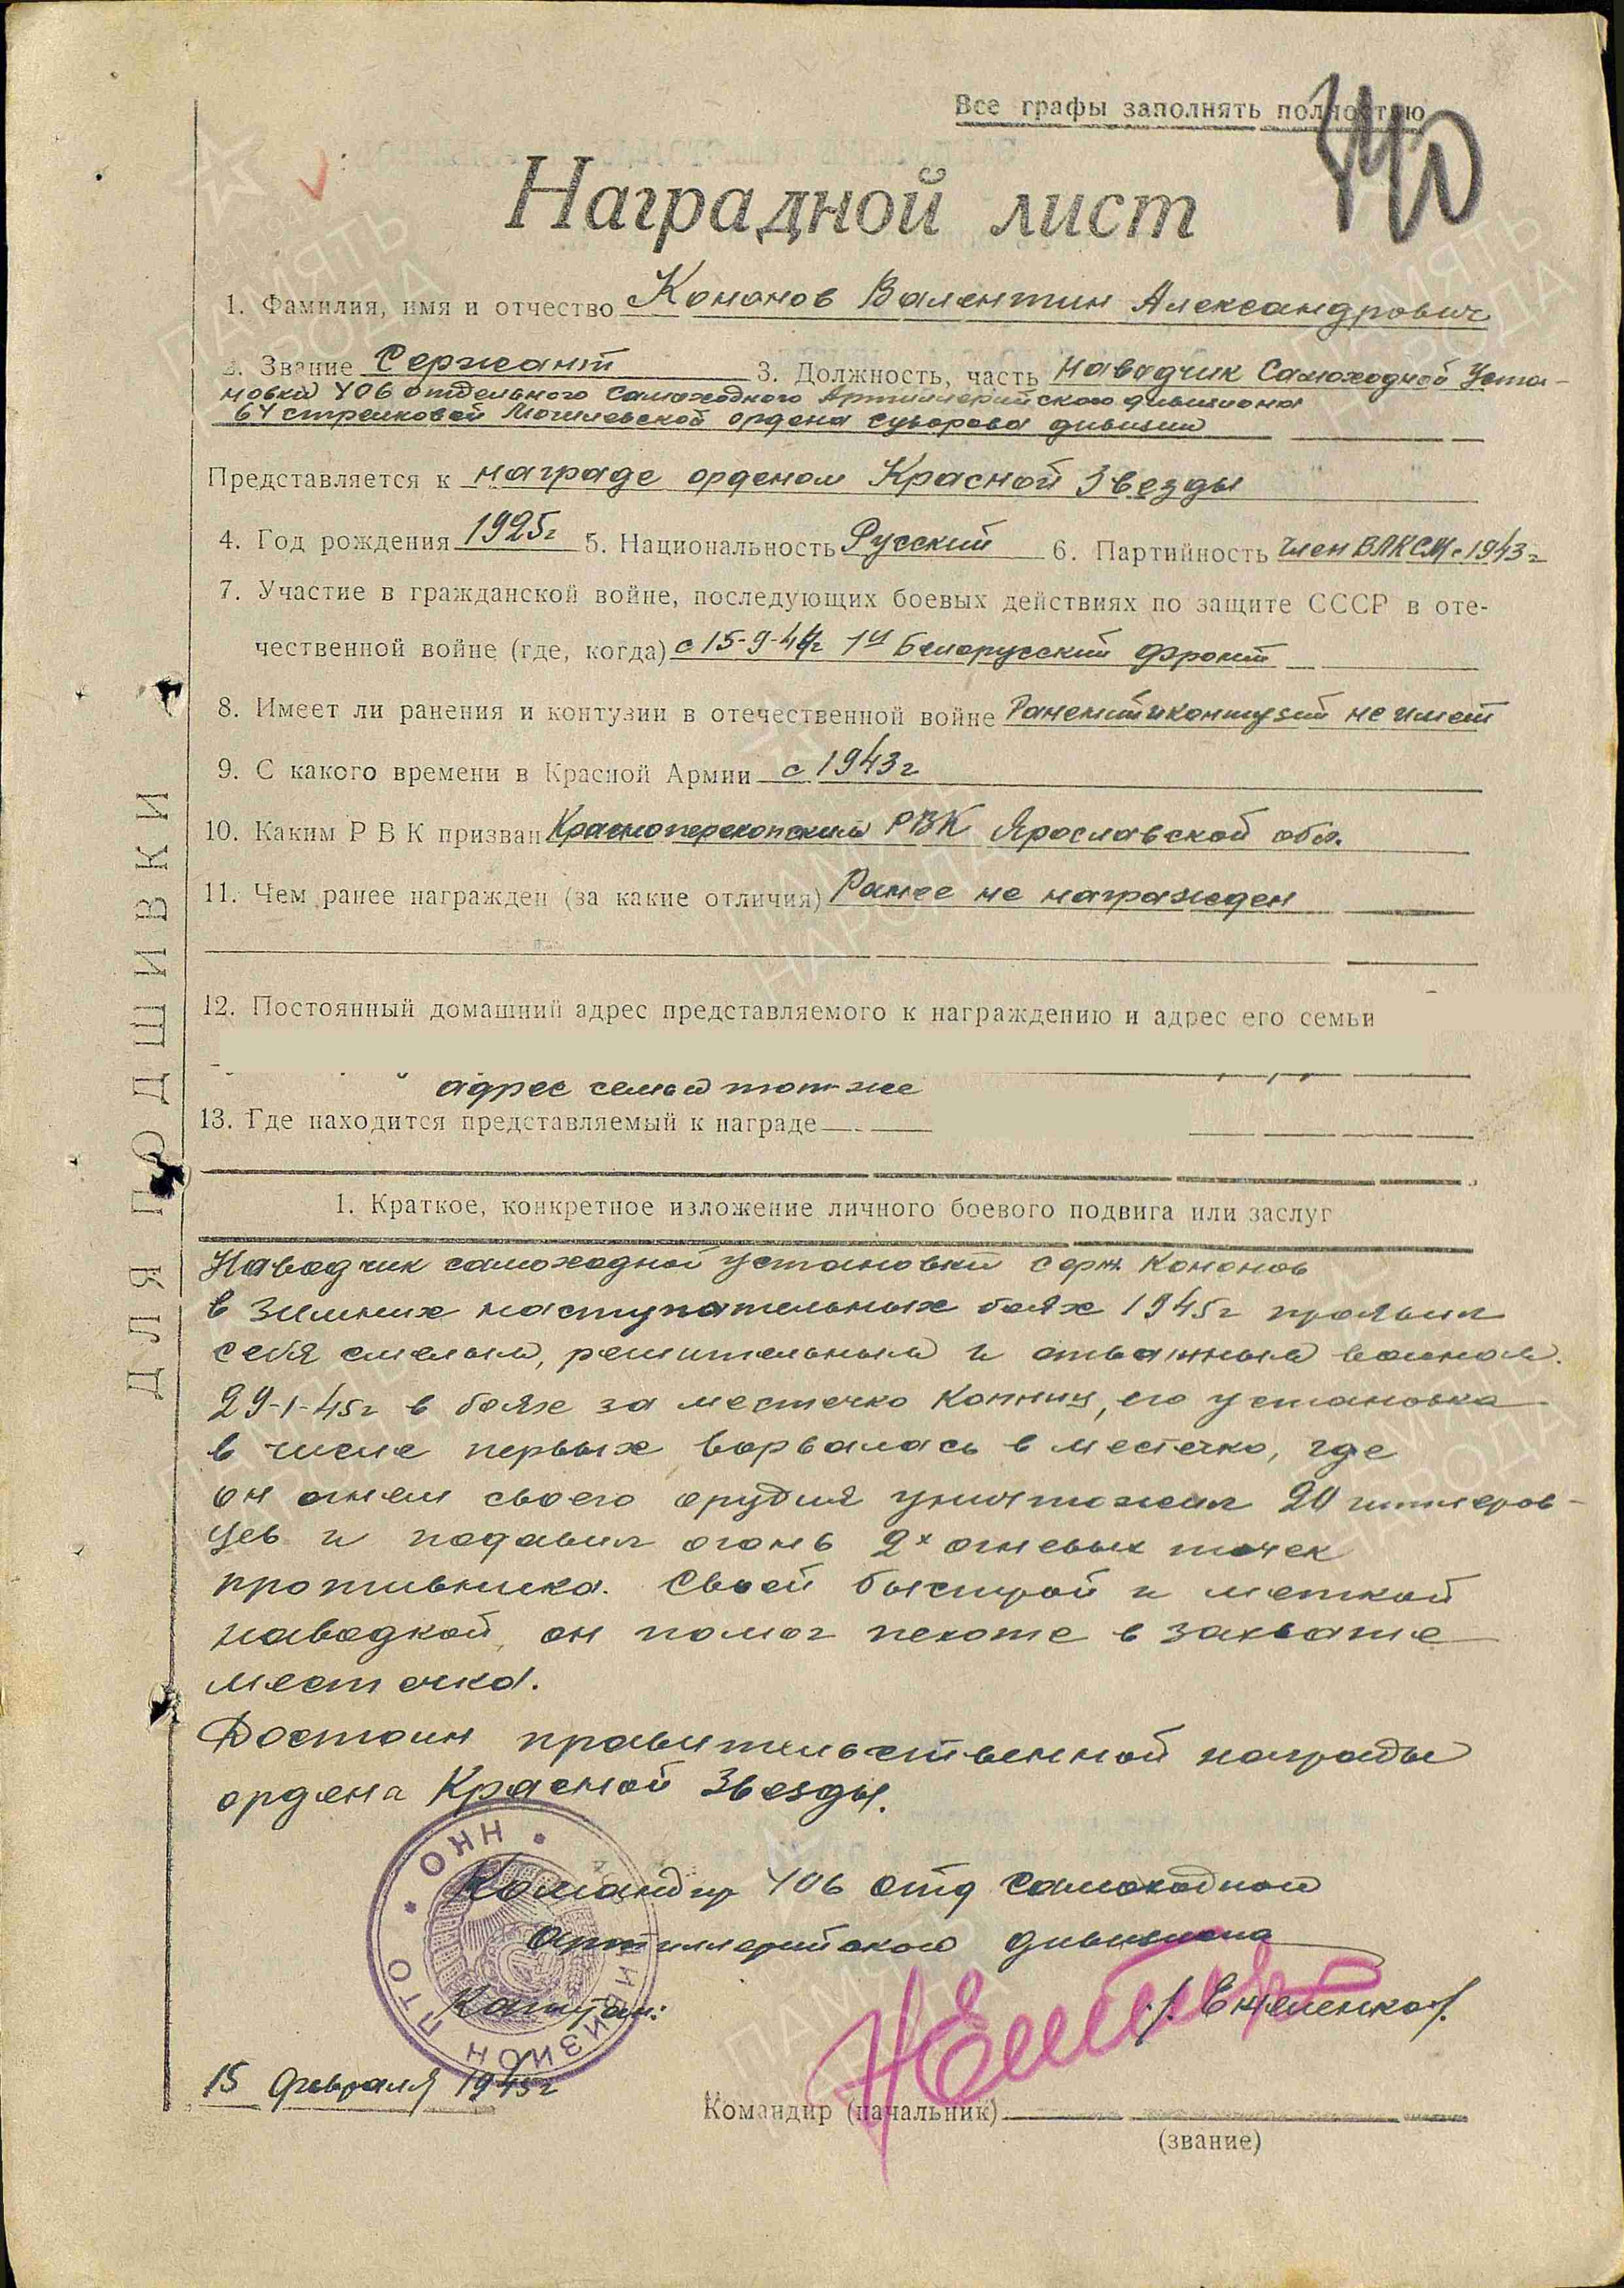 Все графы заполнять полностью
440
Наградной лист
1. Фамилия, имя и отчество Кононов Валентин Александрович
2. Звание Сержант 3. Должность, часть Наводчик Самоходной Уста-
новки 406 отдельного Самоходного Артиллерийского дивизиона
64 стрелковой Могилевской ордена Суворова дивизии
Представляется к награде орденом Красной Звезды
4. Год рождения 1925г 5. Национальность Русский 6. Партийность член ВЛКСМ с 1943г
7. Участие в гражданской войне, последующих боевых действиях по защите СССР в оте-
чественной войне (где, когда) с 15-9-44г 1й Белорусский фронт
8. Имеет ли ранения и контузии в отечественной войне Ранений и контузий не имеет
9. С какого времени в Красной Армии с 1943г
10. Каким РВК призван Красноперекопским РВК Ярославской обл.
11. Чем ранее награжден (за какие отличия) Ранее не награжден
12. Постоянный домашний адрес представляемого к награждению и адрес его семьи
адрес семьи тот-же
13. Где находится представляемый к награде
1. Краткое, конкретное изложение личного боевого подвига или заслуг
Наводчик самоходной установки серж. Кононов
в зимних наступательных боях 1945г проявил
себя смелым, решительным и отважным воином.
29-1-45г в боях за местечко Копниц, его установка
в числе первых ворвалась в местечко, где
он огнем своего орудия уничтожил 20 гитлеров-
цев и подавил огонь 2х огневых точек
противника. Своей быстрой и меткой
наводкой, он помог пехоте в захвате
местечка.
Достоин правительственной награды
ордена Красной Звезды.
Командир 406 отд самоходного
артиллерийского дивизиона
Капитан:
15 февраля 1945г
Командир (начальник)
(звание)
ДЛЯ ПОДШИВКИ
ННО
ДИВИЗИОН ПТО
ПАМЯТЬ НАРОДА